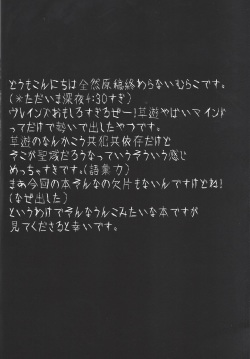 どうもこんにちは全然原稿終わらないむらこです。
(*ただいま深夜4:30すぎ)
ヴレインズおもしろすぎるぜー!草遊やばいマインド
ってだけで勢いで出したやつです。
草遊のなんかこう共犯共依存だけど
そこが聖域だろうなっていうそういう感じ
めっちゃすきです。(語彙力)
まあ今回の本そんなの欠片もないんですけどね!
(なぜ出した)
というわけでそんなうんこみたいな本ですが
見てくださると幸いです。